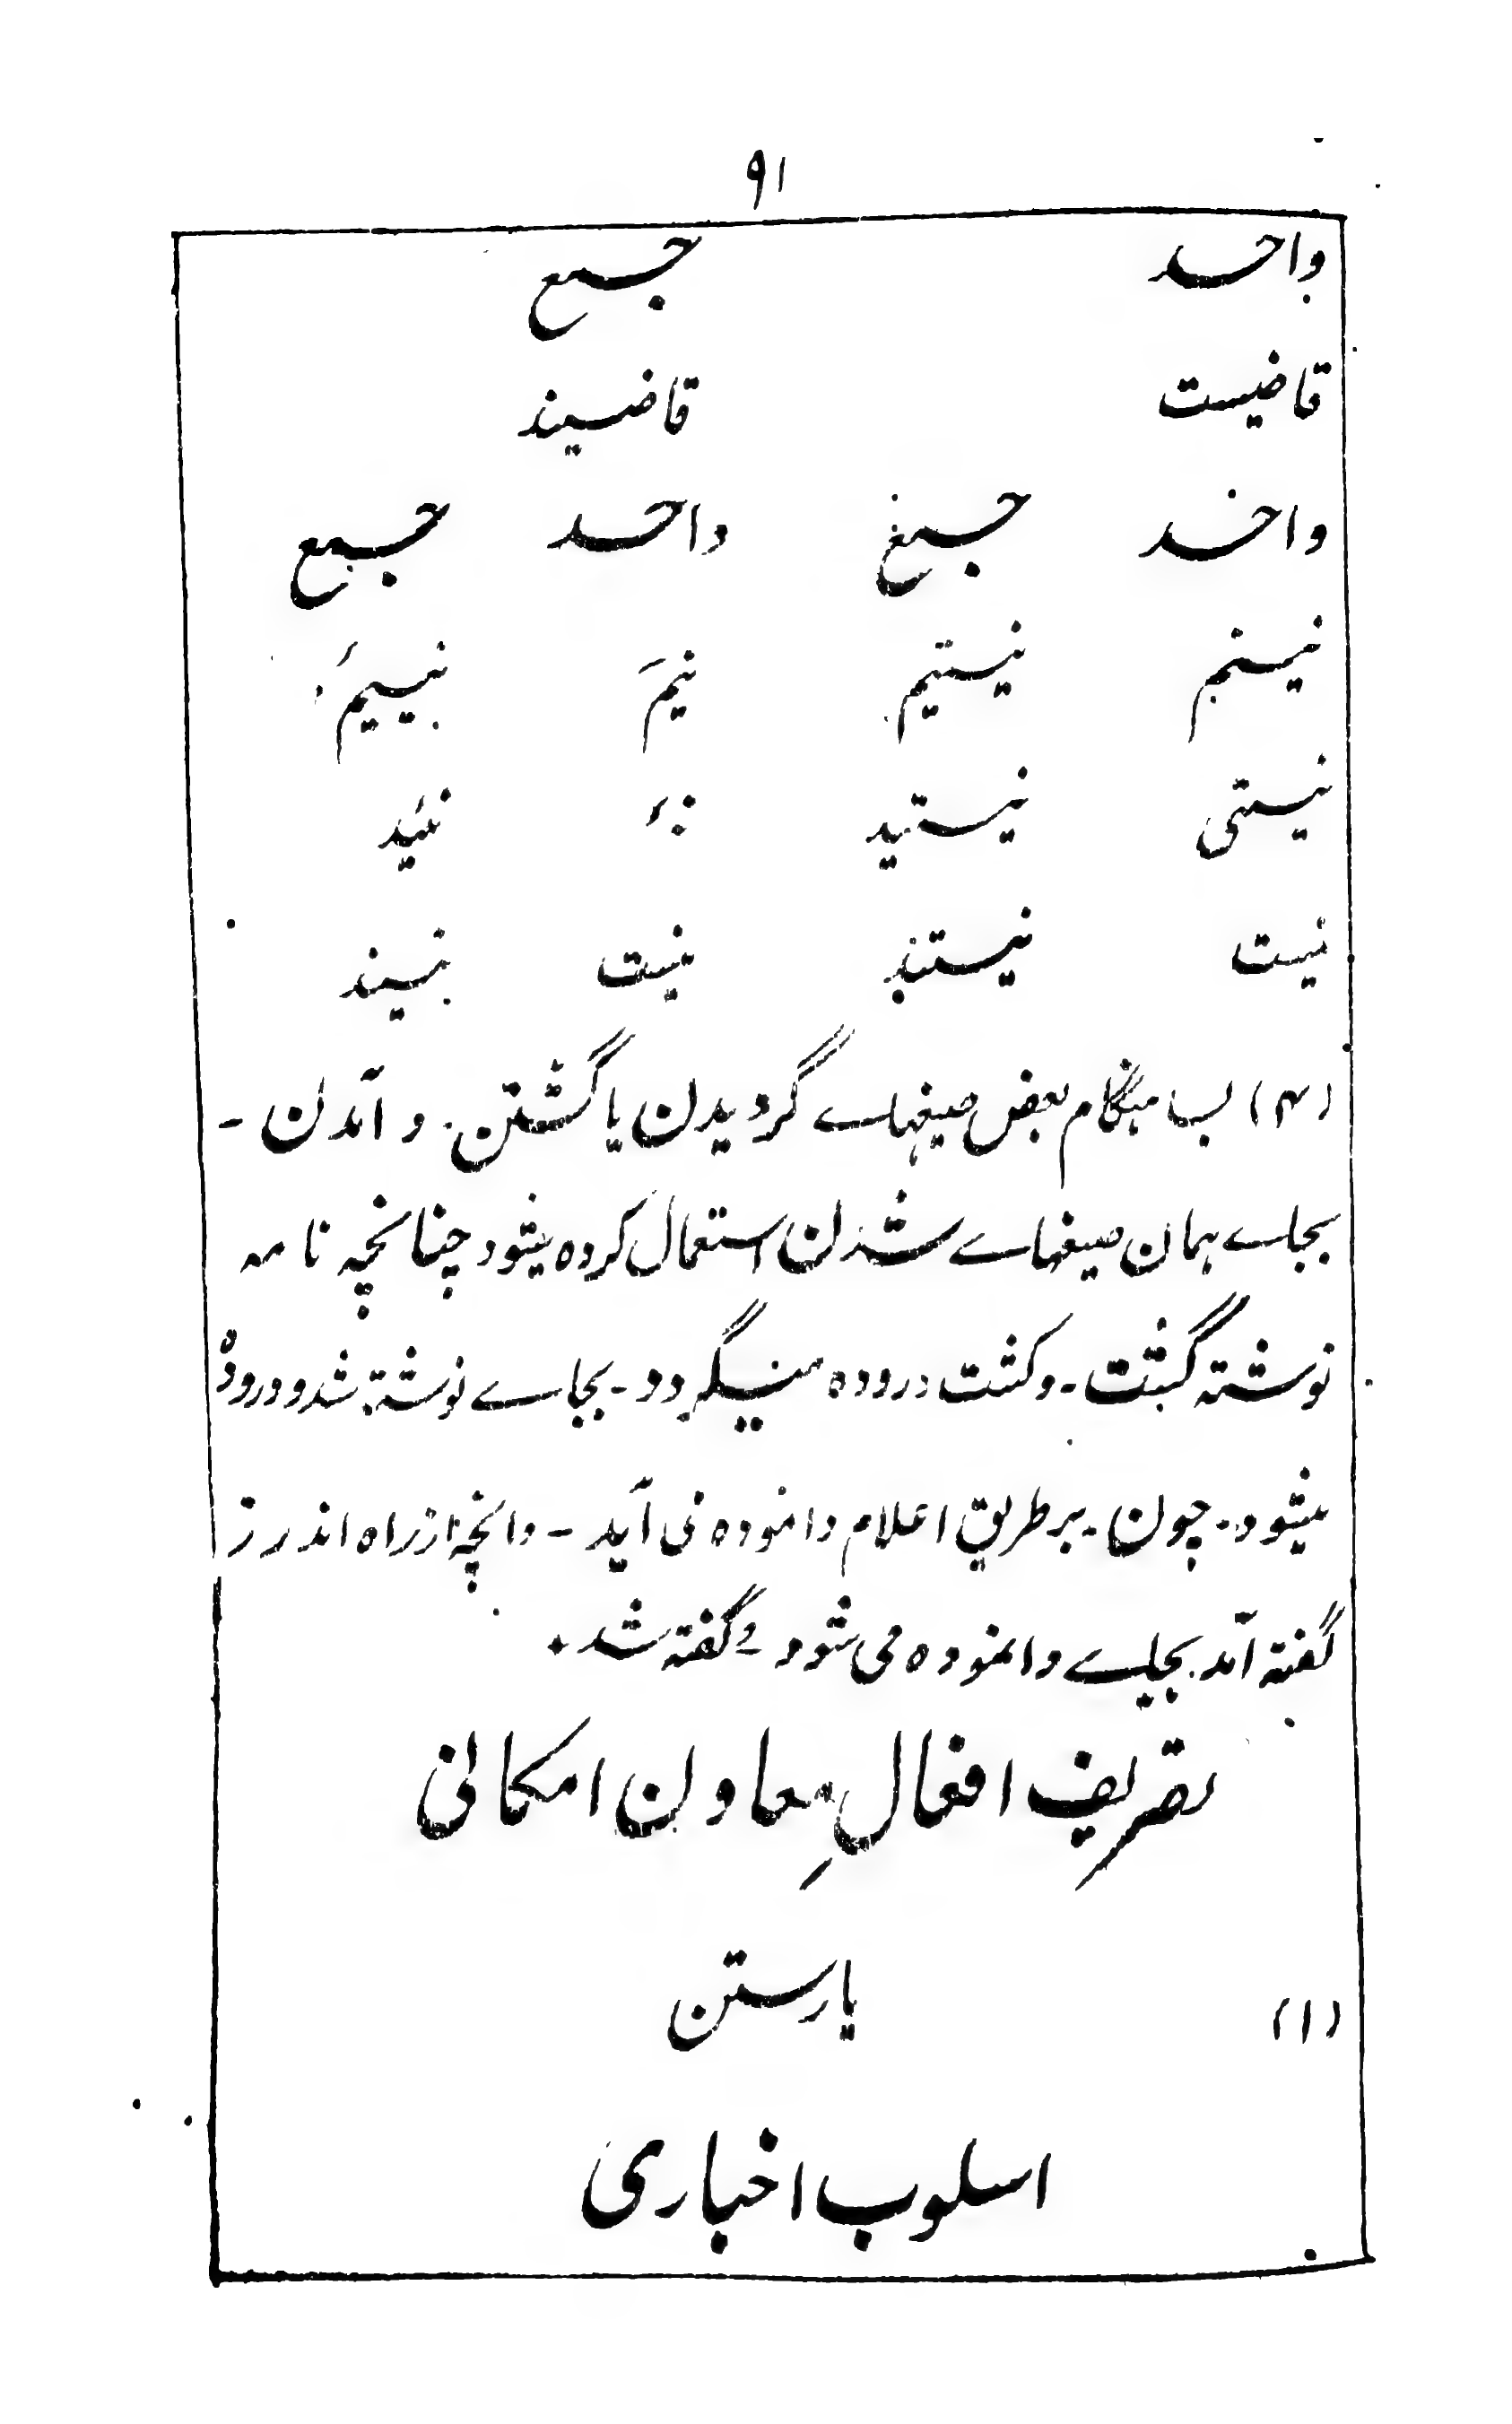 ۹۱
واحد جمع
قاضیست قاضیند
واحد جمع واحد جمع
نیستم نیستیم نیم نییم
نیستی نیستید نۂ نئید
نیست نیستند نیست نیند
(۴) بسا ہنگام بعض صیغہاے گردیدن یا گشتن ۔ و آمدن ۔
بجاے ہمان صیغہاے شدن استعمال کردہ میشود چنانچہ نامہ
نوشتہ گشت ۔ و کشت درودہ میگردد ۔ بجاے نوشتہ شد و درودہ
میشود ۔ چون ۔ بر طریق اعلام وانمودہ می آید ۔ وانچہ از راہ اندرز
گفتہ آمد بجاے وانمودہ می شود و گفتہ شد ۔
تصریف افعالِ معاون امکانی
(۱) یارستن
اسلوب اخباری